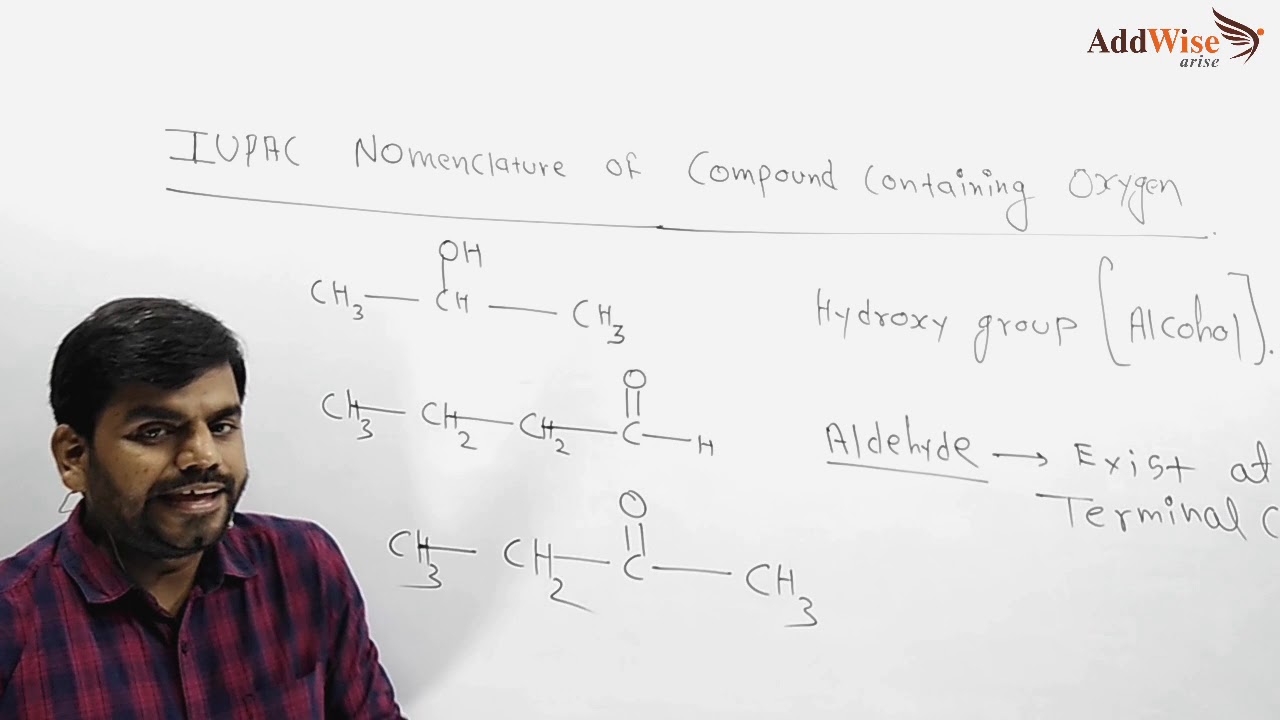 AddWise
arise
IUPAC Nomenclature of Compound Containing Oxygen
OH
CH3 — CH — CH3
Hydroxy group [Alcohol].
O
CH3 — CH2 — CH2 — C — H
Aldehyde → Exist at
Terminal C
O
CH3 — CH2 — C — CH3